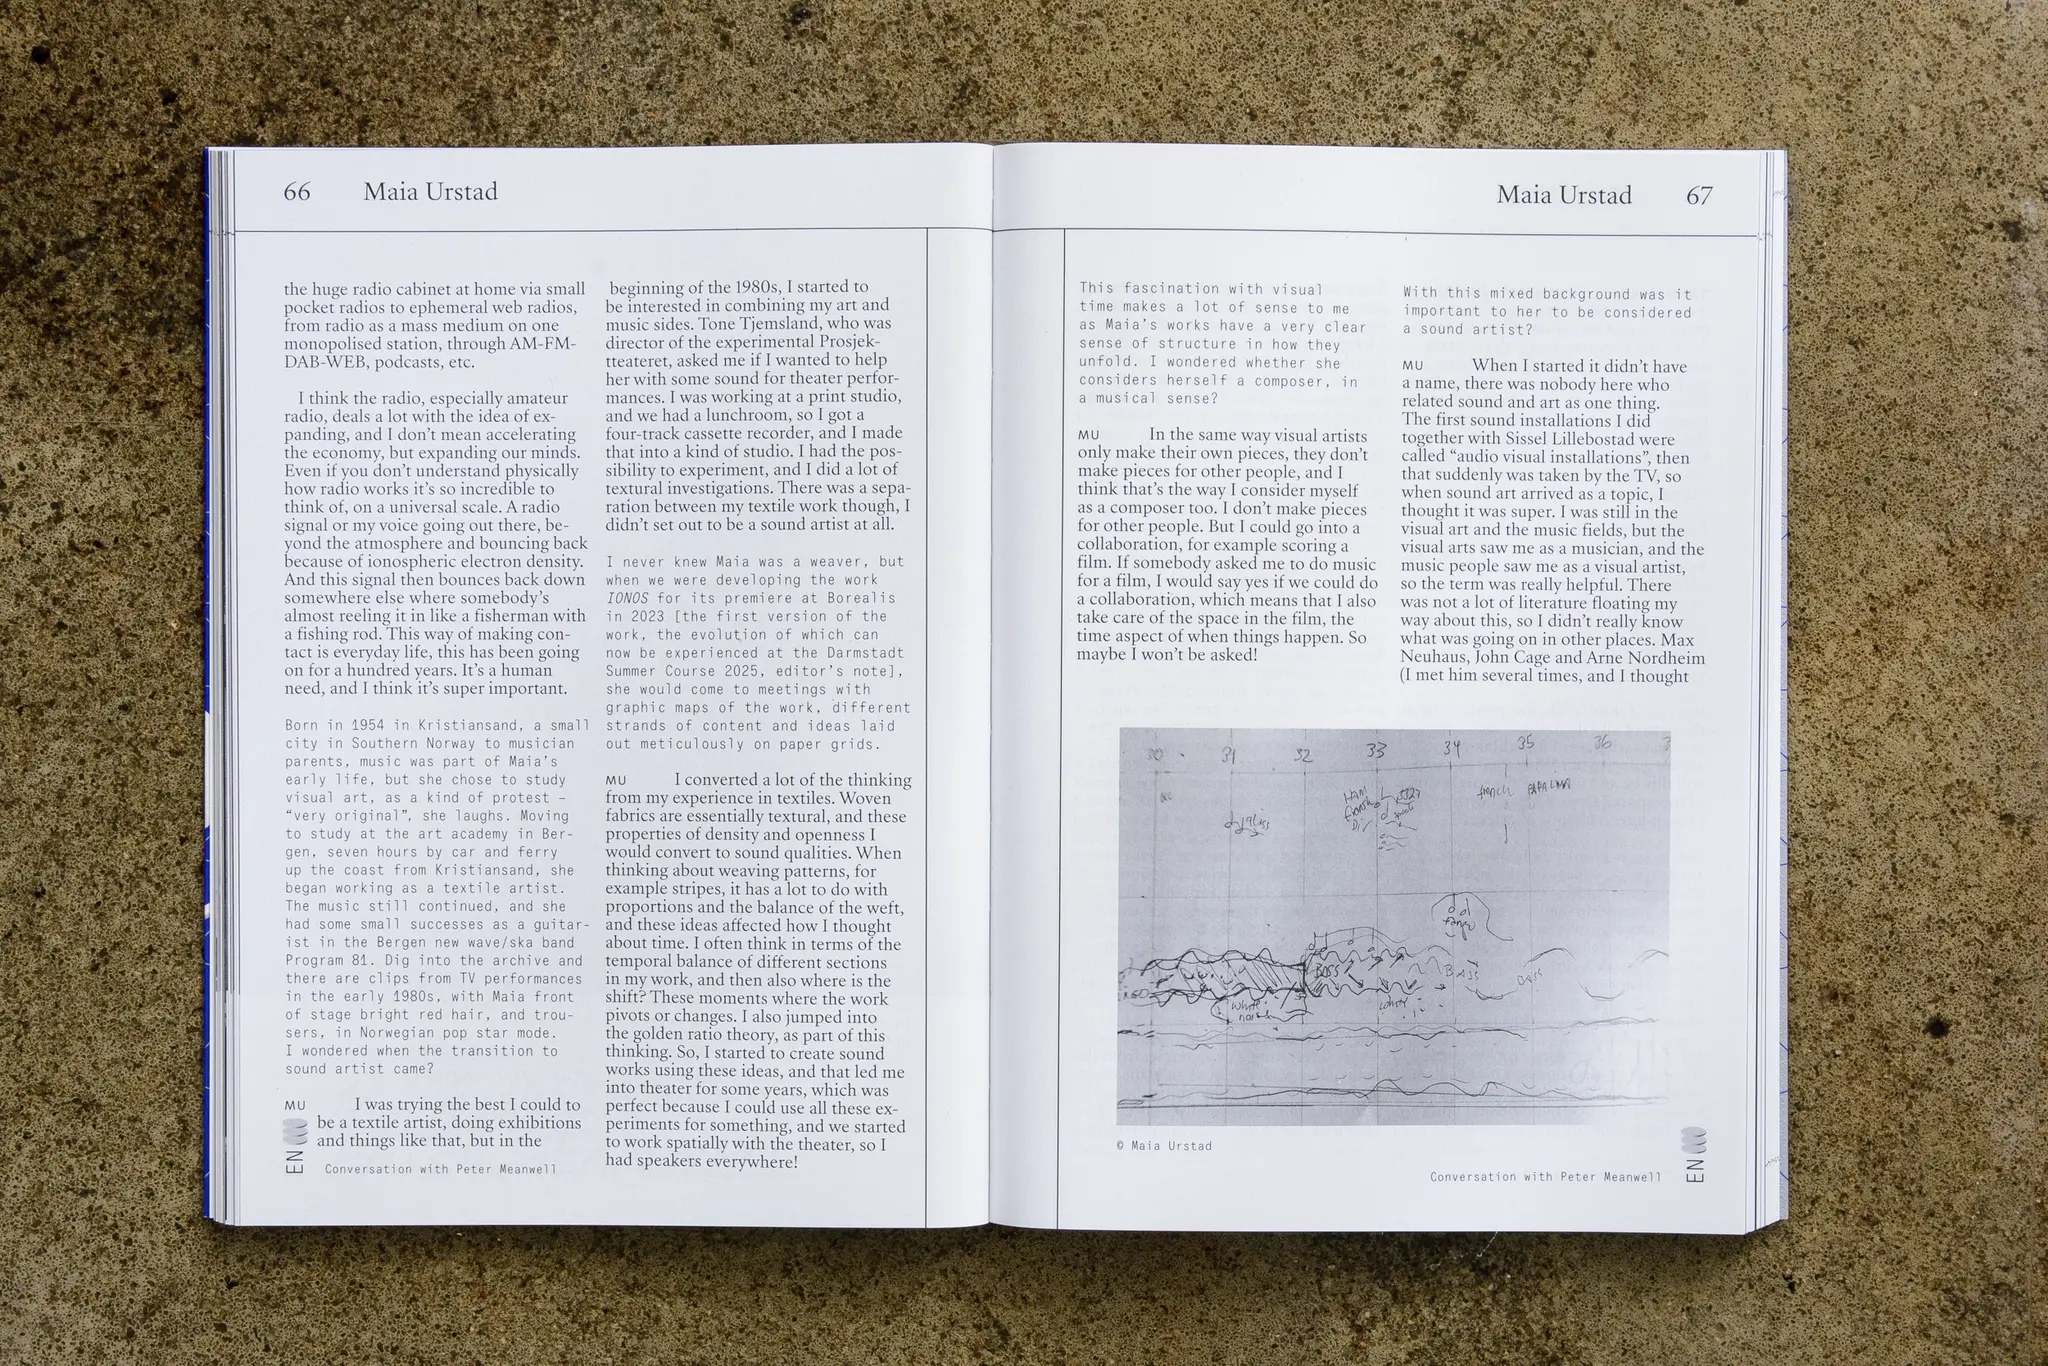 66 Maia Urstad
the huge radio cabinet at home via small
pocket radios to ephemeral web radios,
from radio as a mass medium on one
monopolised station, through AM-FM-
DAB-WEB, podcasts, etc.
I think the radio, especially amateur
radio, deals a lot with the idea of ex-
panding, and I don’t mean accelerating
the economy, but expanding our minds.
Even if you don’t understand physically
how radio works it’s so incredible to
think of, on a universal scale. A radio
signal or my voice going out there, be-
yond the atmosphere and bouncing back
because of ionospheric electron density.
And this signal then bounces back down
somewhere else where somebody’s
almost reeling it in like a fisherman with
a fishing rod. This way of making con-
tact is everyday life, this has been going
on for a hundred years. It’s a human
need, and I think it’s super important.
Born in 1954 in Kristiansand, a small
city in Southern Norway to musician
parents, music was part of Maia’s
early life, but she chose to study
visual art, as a kind of protest –
“very original”, she laughs. Moving
to study at the art academy in Ber-
gen, seven hours by car and ferry
up the coast from Kristiansand, she
began working as a textile artist.
The music still continued, and she
had some small successes as a guitar-
ist in the Bergen new wave/ska band
Program 81. Dig into the archive and
there are clips from TV performances
in the early 1980s, with Maia front
of stage bright red hair, and trou-
sers, in Norwegian pop star mode.
I wondered when the transition to
sound artist came?
MU I was trying the best I could to
be a textile artist, doing exhibitions
and things like that, but in the
EN Conversation with Peter Meanwell
beginning of the 1980s, I started to
be interested in combining my art and
music sides. Tone Tjemsland, who was
director of the experimental Prosjek-
tteateret, asked me if I wanted to help
her with some sound for theater perfor-
mances. I was working at a print studio,
and we had a lunchroom, so I got a
four-track cassette recorder, and I made
that into a kind of studio. I had the pos-
sibility to experiment, and I did a lot of
textural investigations. There was a sepa-
ration between my textile work though, I
didn’t set out to be a sound artist at all.
I never knew Maia was a weaver, but
when we were developing the work
IONOS for its premiere at Borealis
in 2023 [the first version of the
work, the evolution of which can
now be experienced at the Darmstadt
Summer Course 2025, editor’s note],
she would come to meetings with
graphic maps of the work, different
strands of content and ideas laid
out meticulously on paper grids.
MU I converted a lot of the thinking
from my experience in textiles. Woven
fabrics are essentially textural, and these
properties of density and openness I
would convert to sound qualities. When
thinking about weaving patterns, for
example stripes, it has a lot to do with
proportions and the balance of the weft,
and these ideas affected how I thought
about time. I often think in terms of the
temporal balance of different sections
in my work, and then also where is the
shift? These moments where the work
pivots or changes. I also jumped into
the golden ratio theory, as part of this
thinking. So, I started to create sound
works using these ideas, and that led me
into theater for some years, which was
perfect because I could use all these ex-
periments for something, and we started
to work spatially with the theater, so I
had speakers everywhere!
Maia Urstad 67
This fascination with visual
time makes a lot of sense to me
as Maia’s works have a very clear
sense of structure in how they
unfold. I wondered whether she
considers herself a composer, in
a musical sense?
MU In the same way visual artists
only make their own pieces, they don’t
make pieces for other people, and I
think that’s the way I consider myself
as a composer too. I don’t make pieces
for other people. But I could go into a
collaboration, for example scoring a
film. If somebody asked me to do music
for a film, I would say yes if we could do
a collaboration, which means that I also
take care of the space in the film, the
time aspect of when things happen. So
maybe I won’t be asked!
With this mixed background was it
important to her to be considered
a sound artist?
MU When I started it didn’t have
a name, there was nobody here who
related sound and art as one thing.
The first sound installations I did
together with Sissel Lillebostad were
called “audio visual installations”, then
that suddenly was taken by the TV, so
when sound art arrived as a topic, I
thought it was super. I was still in the
visual art and the music fields, but the
visual arts saw me as a musician, and the
music people saw me as a visual artist,
so the term was really helpful. There
was not a lot of literature floating my
way about this, so I didn’t really know
what was going on in other places. Max
Neuhaus, John Cage and Arne Nordheim
(I met him several times, and I thought
30 31 32 33 34 35 36
french
BASS BASS BASS
white
© Maia Urstad
Conversation with Peter Meanwell EN